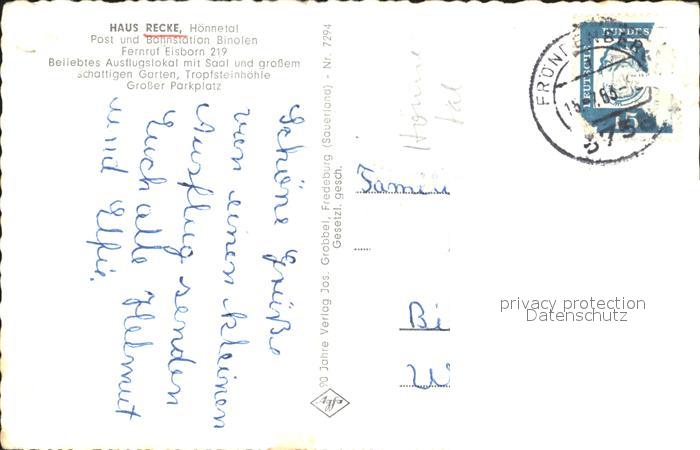 HAUS RECKE, Hönnetal
Post und Bahnstation Binolen
Fernruf Eisborn 219
Beliebtes Ausflugslokal mit Saal und großem
schattigen Garten, Tropfsteinhöhle
Großer Parkplatz
Schöne Grüße
von einen kleinen
Ausflug senden
Euch alle Helmut
und Elfie.
90 Jahre Verlag Jos. Grobbel, Fredeburg (Sauerland) - Nr. 7294
Gesetzl. gesch.
Hönne
tal
Fami
Bi
W
DEUTSCHE BUNDES
15
FRÖNDENBERG
5758
privacy protection
Datenschutz